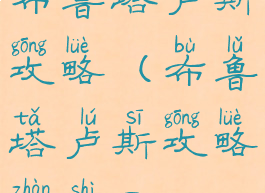 布鲁塔卢斯
gōng lüè bù lǔ
攻略(布鲁
tǎ lú sī gōng lüè
塔卢斯攻略
zhàn shì